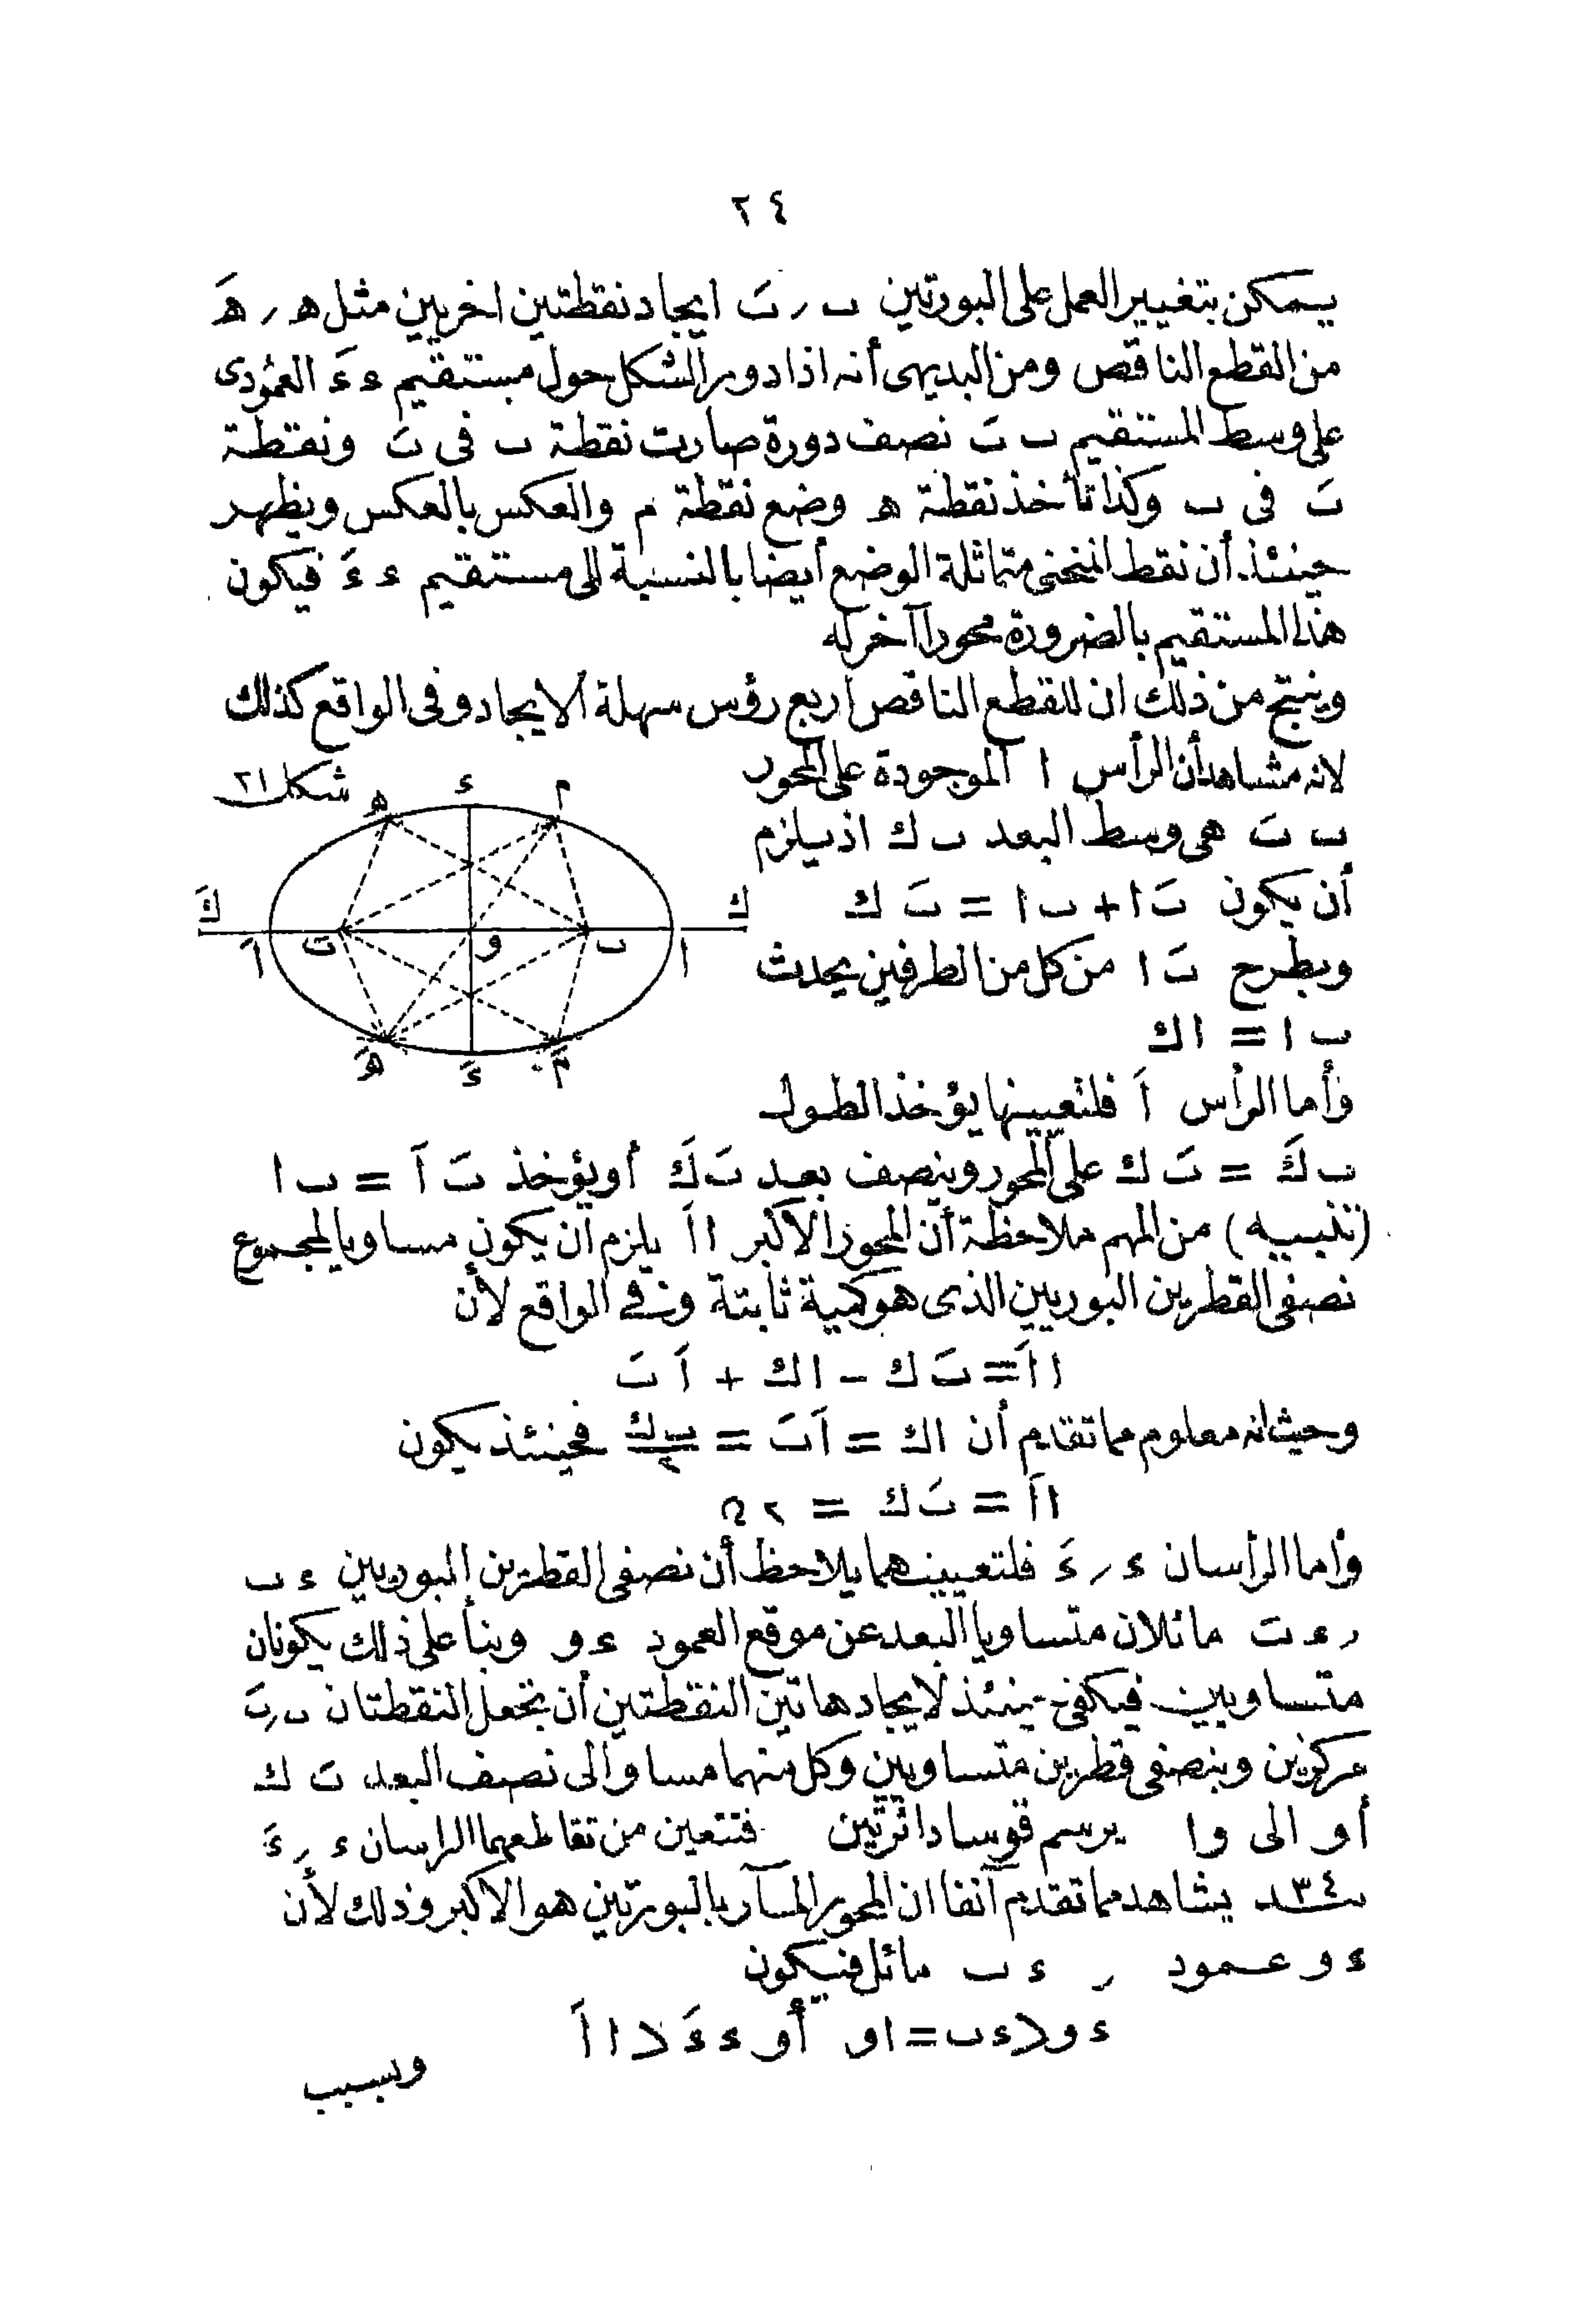 ٢٤
يمكن بتغيير العمل على البورتين ب ر بَ ايجاد نقطتين اخريين مثل ه ر هَ
من القطع الناقص ومن البديهى أنه اذا دور الشكل حول مستقيم ء ءَ العمودى
على وسط المستقيم ب بَ نصف دورة صارت نقطة ب فى بَ ونقطة
بَ فى ب وكذا تأخذ نقطة ه وضع نقطة م والعكس بالعكس ويظهر
حينئذ أن نقط المنحنى متماثلة الوضع أيضا بالنسبة الى مستقيم ء ءَ فيكون
هذا المستقيم بالضرورة محورا آخر له
وينتج من ذلك ان للقطع الناقص أربع رؤس سهلة الايجاد وفى الواقع كذلك
لانه مشاهد أن الرأس ا الموجودة على المحور
ب بَ هى وسط البعد ب ك اذ يلزم
أن يكون بَ ا + ب ا = بَ ك
وبطرح بَ ا من كل من الطرفين يحدث
ب ا = ا ك
وأما الرأس اَ فلتعيينها يؤخذ الطول
ب كَ = بَ ك على المحور وينصف بعد بَ كَ أو يؤخذ بَ اَ = ب ا
(تنبيه) من المهم ملاحظة أن المحور الاكبر ا اَ يلزم أن يكون مساويا لمجموع
نصفى القطرين البوريين الذى هو كمية ثابتة وفى الواقع لأن
ا اَ = بَ ك - ا ك + اَ بَ
وحيث انه معلوم مما تقدم أن ا ك = اَ بَ = ب ك / ٢ فحينئذ يكون
ا اَ = بَ ك = ٢ ں
وأما الرأسان ء ر ءَ فلتعيينهما يلاحظ أن نصفى القطرين البوريين ء ب
ر ء بَ مائلان متساويا البعد عن موقع العمود ء و وبناء على ذلك يكونان
متساويين فيكفى حينئذ لايجاد هاتين النقطتين أن تجعل النقطتان ب ر بَ
مركزين وبنصفى قطرين متساويين وكل منهما مساو الى نصف البعد بَ ك
أو الى و ا يرسم قوسا دائرتين فتتعين من تقاطعهما الراسان ء ر ءَ
بند ٣٤ يشاهد مما تقدم آنفا ان المحور المار بالبورتين هو الاكبر وذلك لأن
ء و عمود ر ء ب مائل فيكون
ء و > ء ب = ا و أو ء ءَ > ا اَ
وبسبب
شكل ٢١
ه ء م
كَ ك
اَ بَ و ب ا
هَ ءَ مَ